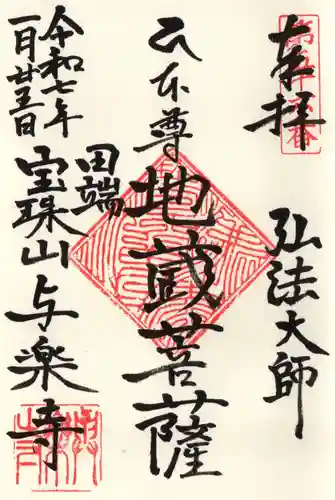 奉拝
弘法大師
御本尊
地蔵菩薩
田端
宝珠山与楽寺
令和七年
一月廿五日